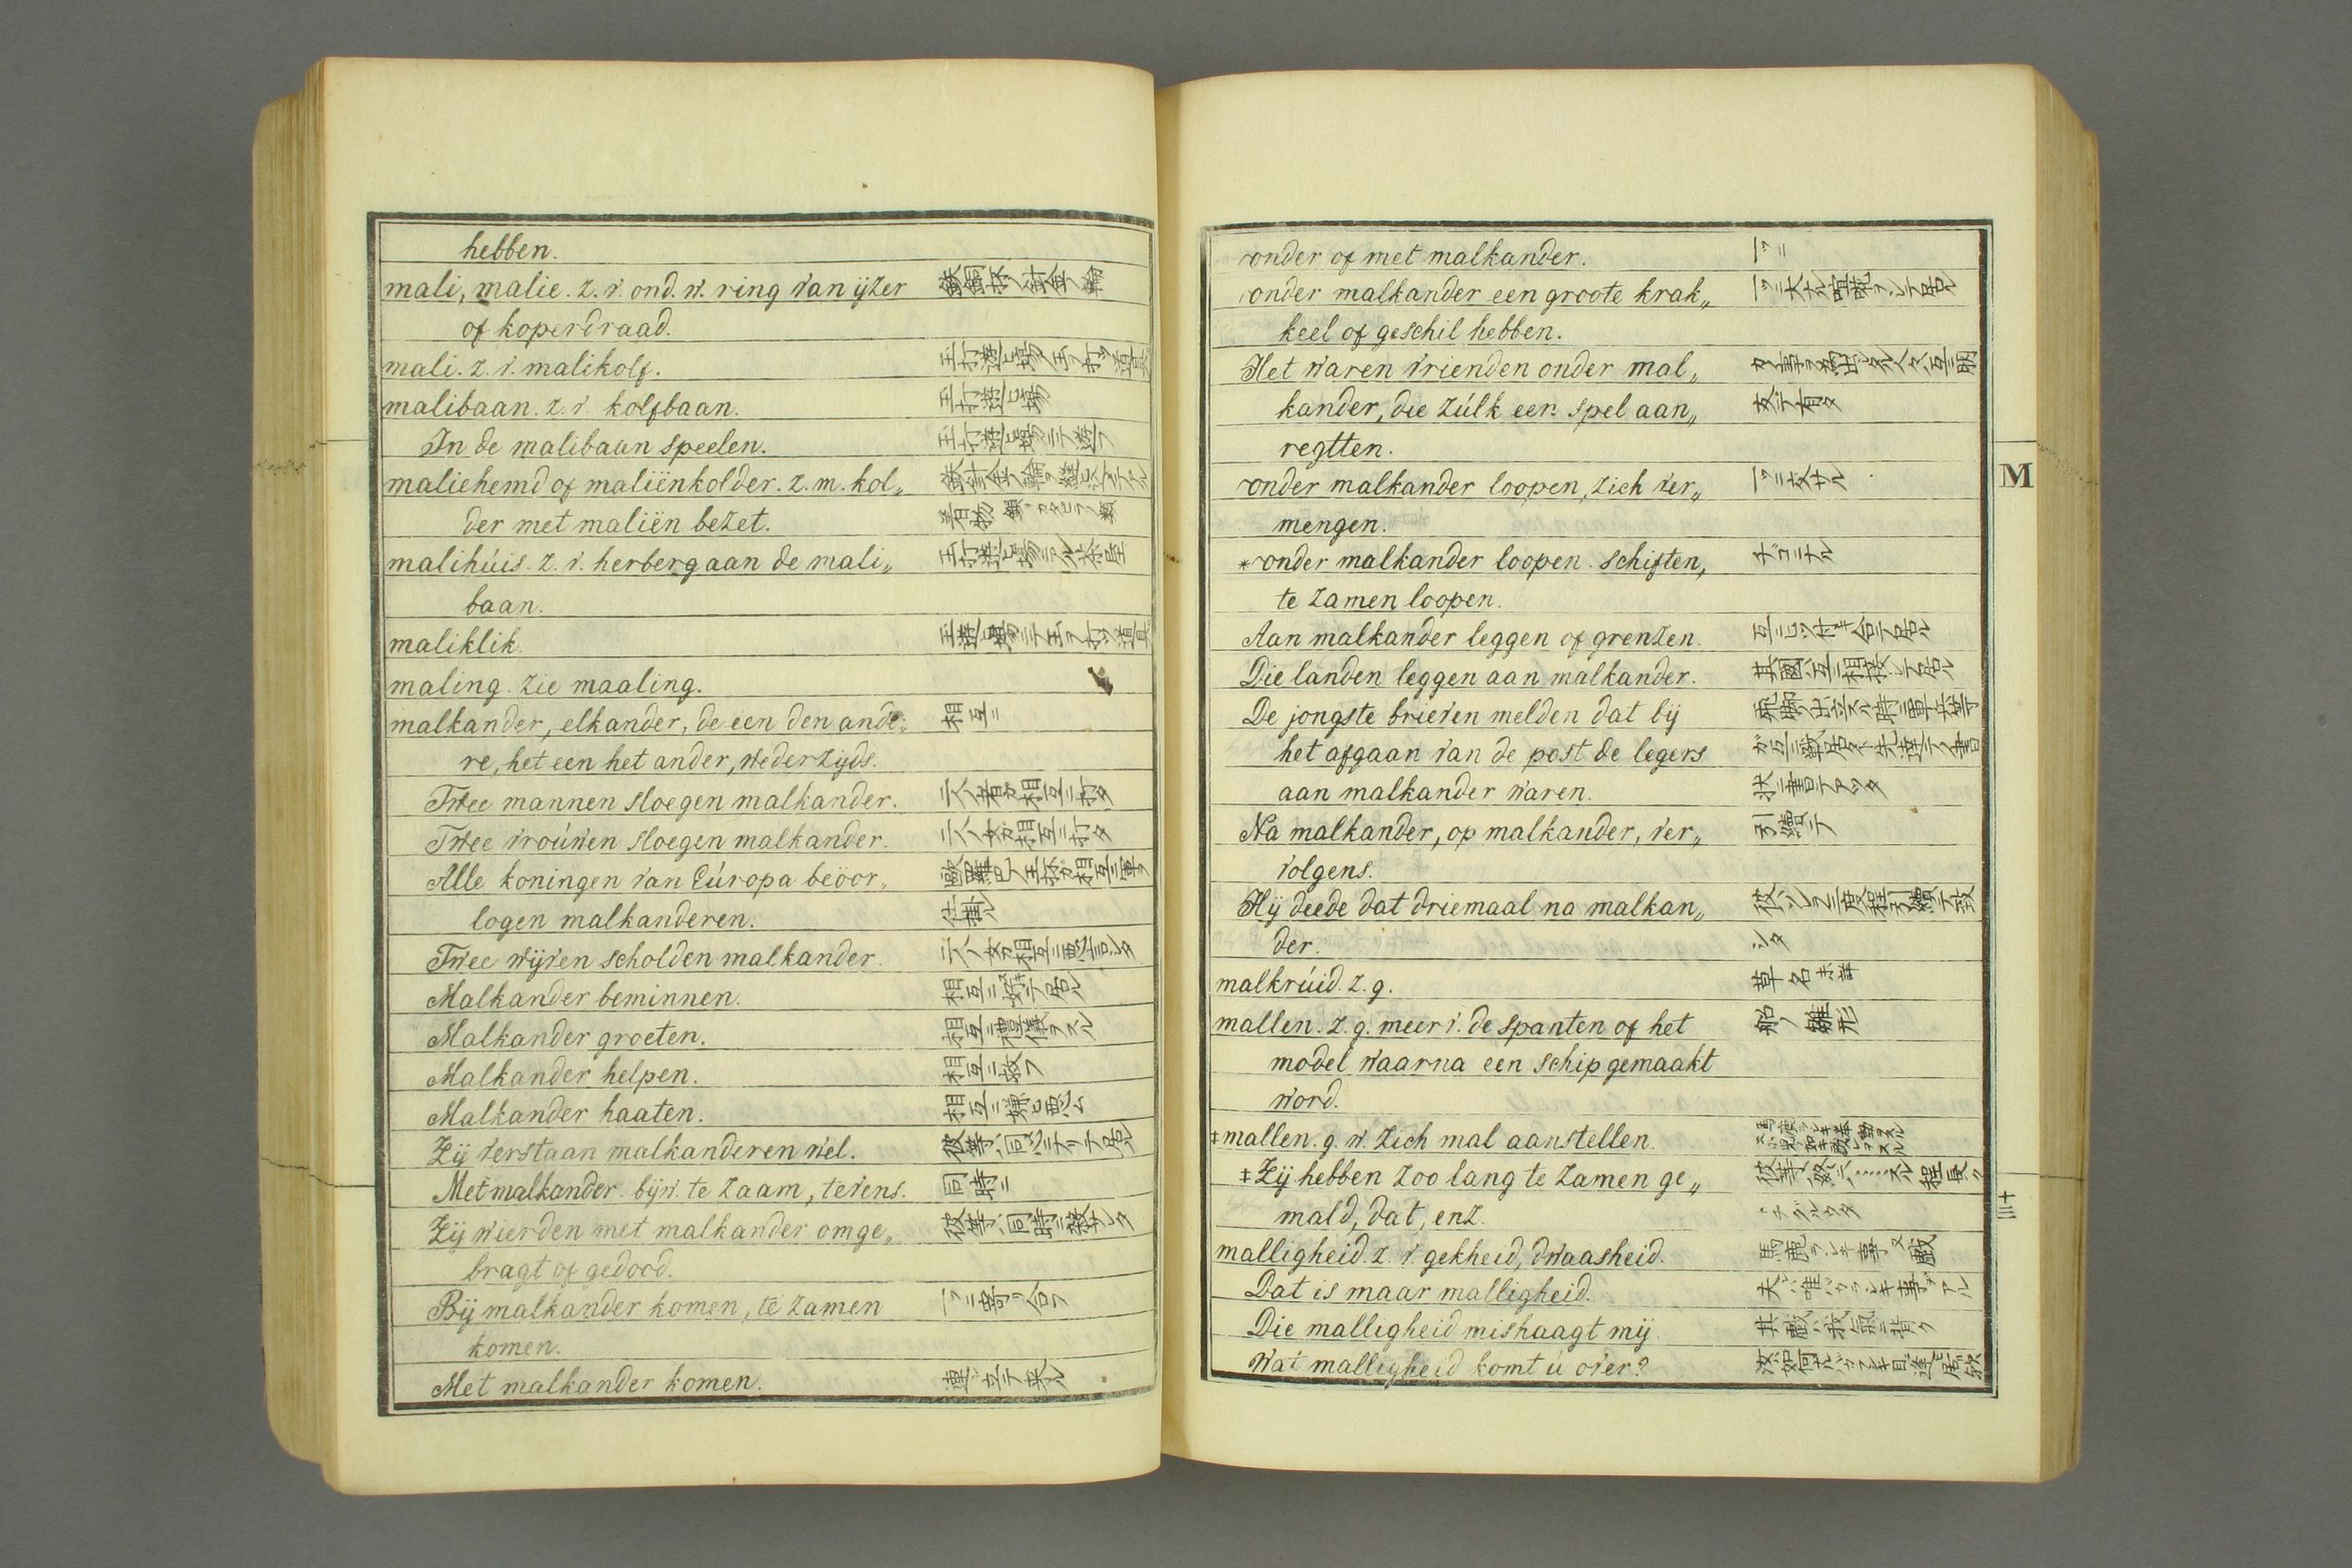 hebben.
mali, malie. z. v. ond. w. ring van ijzer 鉄銅抔ノ針金ノ輪
of koperdraad.
mali. z. v. malikolf. 玉打遊ヒ場ノ玉ヲ打ツ道具
malibaan. z. v. kolfbaan. 玉打遊ヒ場
In de malibaan speelen. 玉打遊ヒ場ニテ遊フ
maliehemd of maliënkolder. z. m. kol„ 鉄針金ノ輪ヲ
der met maliën bezet. 着物
malihúis. z. v. herberg aan de mali„ 玉打遊ヒ場ニアル茶屋
baan.
maliklik. 玉遊ヒ場ニテ玉ヲ打ツ道具
maling. zie maaling.
malkander, elkander, de een den ande„ 相互ニ
re, het een het ander, wederzijds.
Twee mannen sloegen malkander. 二人ノ者ガ相互ニ打タ
Twee vroúwen sloegen malkander. 二人ノ女ガ相互ニ打タ
Alle koningen van Eúropa beöor„ 歐羅巴ノ王抔ガ相互ニ軍ヲ
logen malkanderen. 仕掛ル
Twee wijven scholden malkander. 二人ノ女ガ相互ニ悪言シタ
Malkander beminnen. 相互ニ好テ居ル
Malkander groeten. 相互ニ禮儀ヲスル
Malkander helpen. 相互ニ救フ
Malkander haaten. 相互ニ嫌ヒ悪ム
Zij verstaan malkanderen wel. 彼等ハ同心ニナリテ居ル
Met malkander. bijw. te zaam, tevens. 同時ニ
Zij wierden met malkander omge„ 彼等ハ同時ニ殺サレタ
bragt of gedood.
Bij malkander komen, te zamen 一ツニ寄リ合フ
komen.
Met malkander komen. 連立テ来ル
onder of met malkander. 一ツニ
onder malkander een groote krak„ 一ツニ大ナル喧𠵅ヲシテ居ル
keel of geschil hebben.
Het waren vrienden onder mal„
kander, die zúlk een spel aan„ 友デ有タ
regtten.
onder malkander loopen, zich ver„ 一ツニ交サル
mengen.
*onder malkander loopen. schiften, チゴニナル
te zamen loopen.
Aan malkander leggen of grenzen. 互ニヒツ付キ合テ居ル
Die landen leggen aan malkander. 其國ハ互ニ相接シテ居ル
De jongste brieven melden dat bij 飛脚ノ出立スル時ニ軍兵等
het afgaan van de post de legers
aan malkander waren. 状ニ書テアツタ
Na malkander, op malkander, ver„ 引續テ
volgens.
Hij deede dat driemaal na malkan„ 彼ハソレヲ三度程引續テ致
der. シタ
malkrúid. z. g. 草ノ名
mallen. z. g. meerv. de spanten of het 船ノ雛形
model waarna een schip gemaakt
word.
‡mallen. g. w. zich mal aanstellen.
‡Zij hebben zoo lang te zamen ge„
mald, dat, enz.
malligheid. z. v. gekheid, dwaasheid. 馬鹿ラシキ事又戯
Dat is maar malligheid.
Die malligheid mishaagt mij. 其戯ハ我氣ニ背ク
Wat malligheid komt ú over?
M